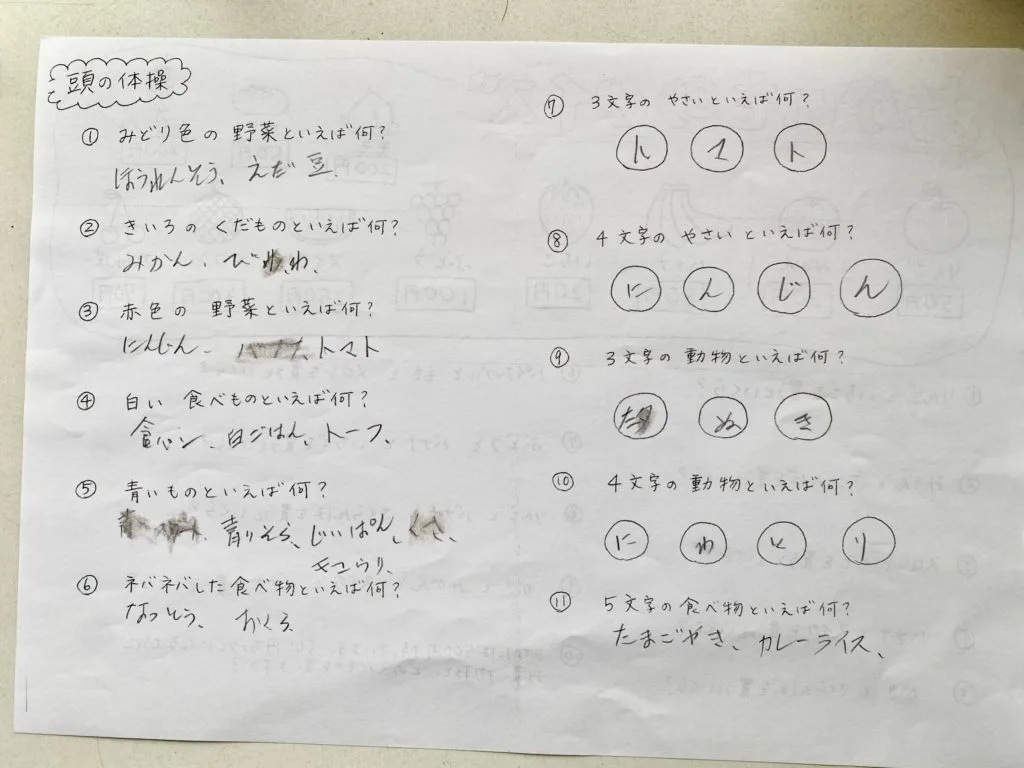 頭の体操
① みどり色の 野菜といえば何?
ほうれんそう、えだ豆
② きいろの くだものといえば何?
みかん、びわ、
③ 赤色の 野菜といえば何?
にんじん、トマト
④ 白い 食べものといえば何?
食パン、白ごはん、トーフ、
⑤ 青いものといえば何?
青りそら、じいぱん、
きゅうり、
⑥ ネバネバした食べ物といえば何?
なっとう、おくら
⑦ 3文字の やさいといえば何?
トマト
⑧ 4文字の やさいといえば何?
にんじん
⑨ 3文字の 動物といえば何?
たぬき
⑩ 4文字の動物といえば何?
にわとり
⑪ 5文字の食べ物といえば何?
たまごやき、カレーライス、